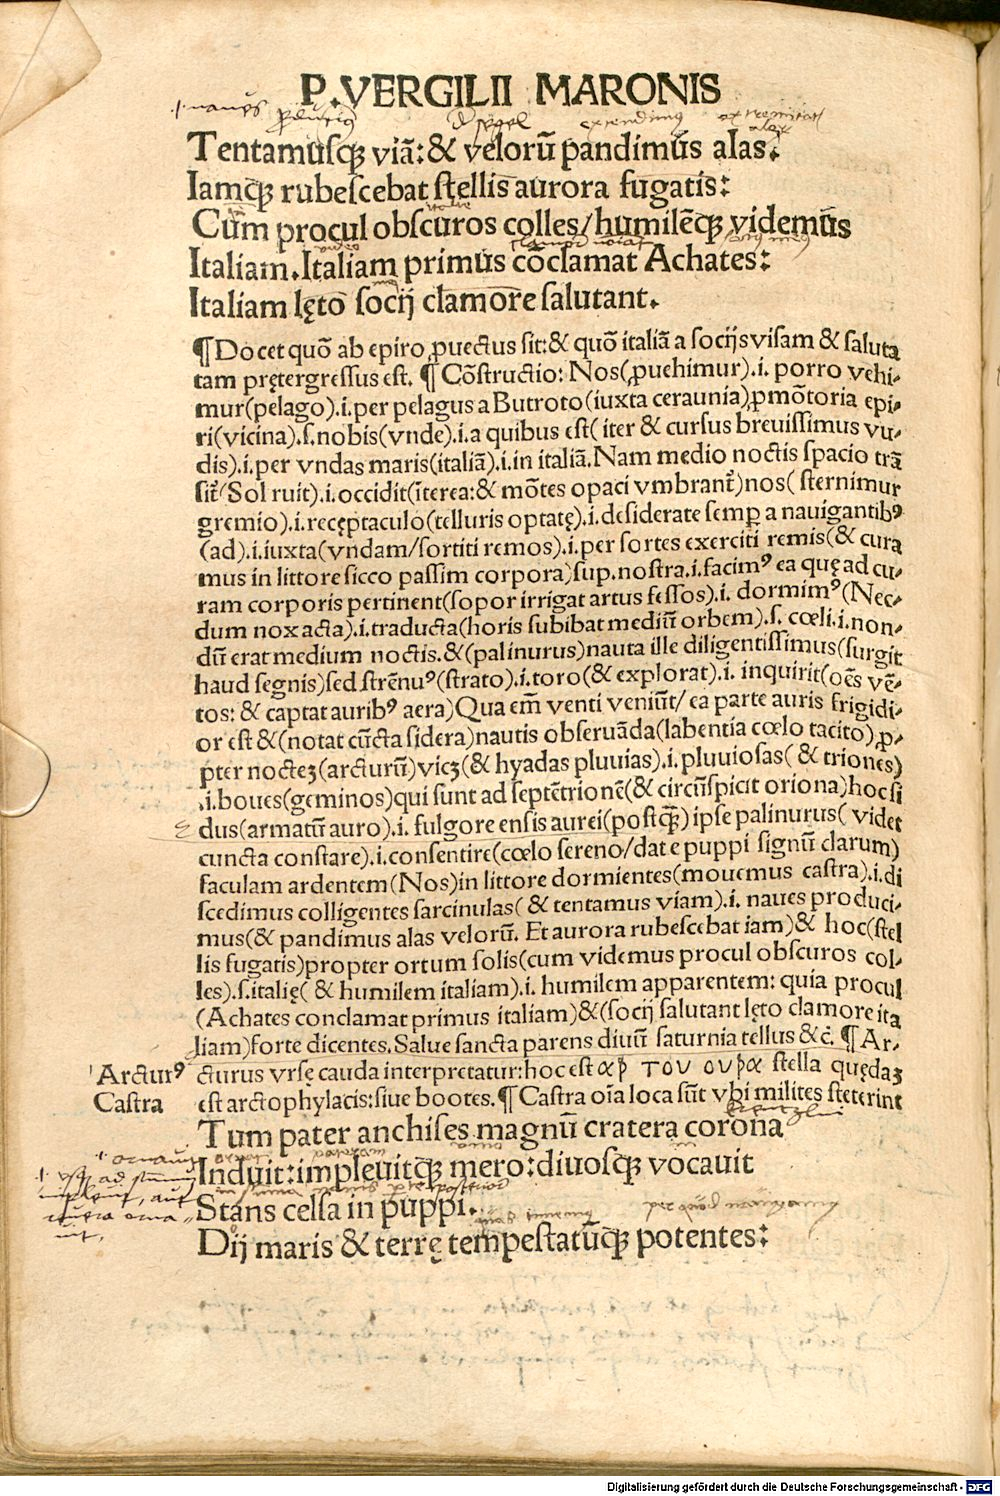 P.VERGILII MARONIS
Tentamusq́ꝫ viā:& velorū pandimus alas.
Iamqꝫ rubescebat stellis aurora fugatis:
Cum procul obscuros colles/humilēqꝫ videmus
Italiam.Italiam primus cōclamat Achates:
Italiam lęto socij clamore salutant.
¶Docet quō ab epiro ꝓuectus sit:& quō italiā a socijs visam & saluta
tam prętergressus est. ¶ Cōstructio: Nos(ꝓuehimur).i. porro vehi-
mur(pelago).i.per pelagus a Butroto(iuxta ceraunia)ꝓmōtoria epi-
ri(vicina).s.nobis(vnde).i.a quibus est( iter & cursus breuissimus vn-
dis).i.per vndas maris(italiā).i.in italiā.Nam medio noctis spacio trā
sit(Sol ruit).i.occidit(īterea:& mōtes opaci vmbrant)nos( sternimur
gremio).i.recęptaculo(telluris optatę).i.desiderate semꝑ a nauigantibꝰ
(ad).i.iuxta(vndam/sortiti remos).i.per sortes exerciti remis(& cura
mus in littore sicco passim corpora)sup.nostra.i.facimꝰ ea quę ad cu-
ram corporis pertinent(sopor irrigat artus fessos).i. dormimꝰ(Nec-
dum nox acta).i.traducta(horis subibat mediū orbem).s. cœli.i.non-
dū erat medium noctis.&(palinurus)nauta ille diligentissimus(surgit
haud segnis)sed strēnuꝰ(strato).i.toro(& explorat).i. inquirit(oēs vē-
tos: & captat auribꝰ aera)Qua em̄ venti veniūt/ ea parte auris frigidi-
or est &(notat cūcta sidera)nautis obseruāda(labentia cœlo tacito)ꝓ-
pter nocteꝫ(arcturū)vicꝫ(& hyadas pluuias).i.pluuiosas( & triones)
.i.boues(geminos)qui sunt ad septētrionē(& circūspicit oriona)hoc si
dus(armatū auro).i. fulgore ensis aurei(postqꝫ)ipse palinurus( videt
cuncta constare).i.consentire(cœlo sereno/dat e puppi signū clarum)
faculam ardentem(Nos)in littore dormientes(mouemus castra).i.di
scedimus colligentes sarcinulas( & tentamus viam).i. naues produci-
mus(& pandimus alas velorū. Et aurora rubescebat iam)& hoc(stel
lis fugatis)propter ortum solis(cum videmus procul obscuros col-
les).s.italię( & humilem italiam).i. humilem apparentem: quia procul
(Achates conclamat primus italiam)&(socij salutant lęto clamore ita
liam)forte dicentes.Salue sancta parens diuū saturnia tellus &c̄. ¶Ar-
Arcturꝰ
cturus vrsę cauda interpretatur:hoc est αρ του ουρα stella quędaꝫ
Castra
est arctophylacis:siue bootes.¶ Castra oīa loca sūt vbi milites steterint
Tum pater anchises magnū cratera corona
Induit:impleuitqꝫ mero:diuosqꝫ vocauit
Stans celsa in puppi.
Dij maris & terrę tempestatūqꝫ potentes:
Digitalisierung gefördert durch die Deutsche Forschungsgemeinschaft - DFG